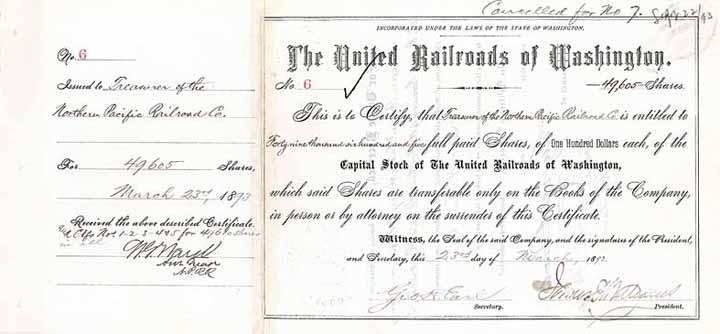 Cancelled for No 7. Sept 22/93
INCORPORATED UNDER THE LAWS OF THE STATE OF WASHINGTON.
The United Railroads of Washington.
No. 6
49,605 Shares.
This is to Certify, that Treasurer of the Northern Pacific Railroad Co. is entitled to
Forty nine thousand six hundred and five full paid Shares, of One Hundred Dollars each, of the
Capital Stock of The United Railroads of Washington,
which said Shares are transferable only on the Books of the Company,
in person or by attorney on the surrender of this Certificate.
Witness, the Seal of the said Company, and the signatures of the President,
and Secretary, this 23rd day of March, 189
Geo H Earl
Secretary.
President.
No. 6
Issued to Treasurer of the
Northern Pacific Railroad Co.
For 49605 Shares,
March 23rd, 1893
Received the above described Certificate.
Nos 1-2-3-4&5 for 49,600 shares